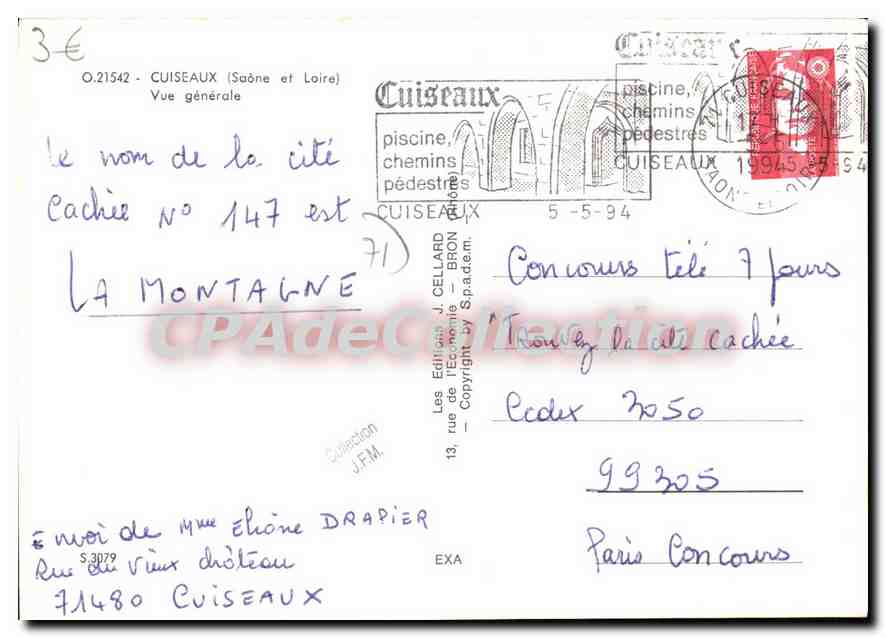 3 €
O.21542 - CUISEAUX (Saône et Loire)
Vue générale
Le nom de la cité
Cachée N° 147 est
LA MONTAGNE
71)
Cuiseaux
piscine,
chemins
pédestres
CUISEAUX 5 -5-94
Cuiseaux
piscine,
chemins
pédestres
CUISEAUX 5-94
71 CUISEAUX
1994
SAONE-ET-LOIRE
Les Editions J. CELLARD
13, rue de l'Economie — BRON (Rhône)
— Copyright by S.p.a.d.e.m. —
Concours télé 7 Jours
"Trouvez la cité cachée
Cedex 3050
99305
Paris Concours
CPAdeCollection.com
Collection
J.F.M.
Envoi de Mme Eliane DRAPIER
S.3079
Rue du Vieux château
71480 CUISEAUX
EXA